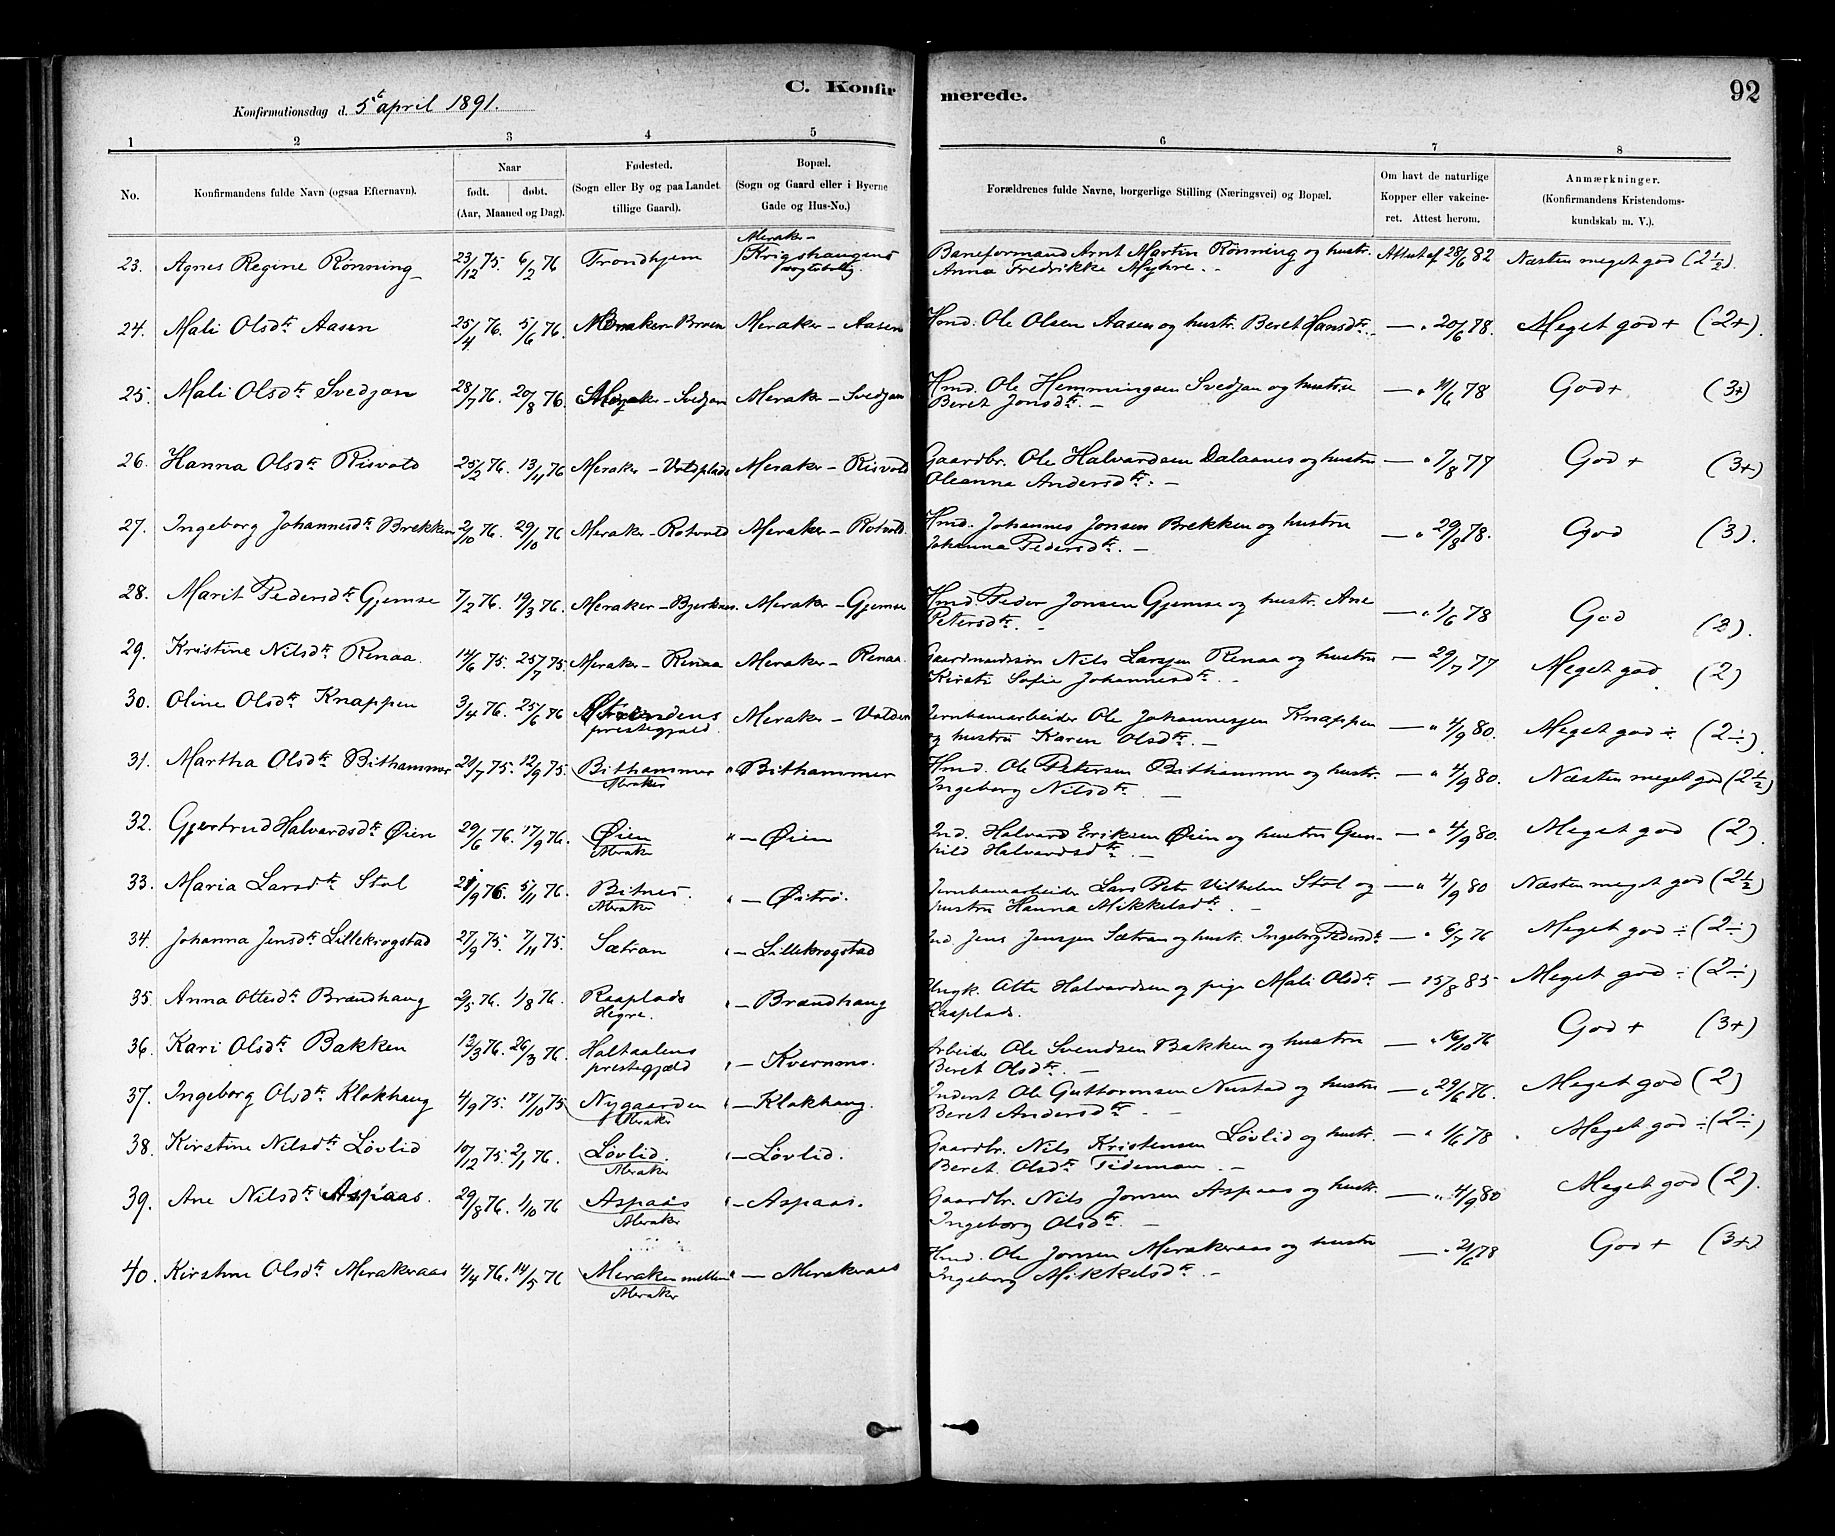 C. Konfirmerede.
92
Konfirmationsdag d. 5te april 1891.
1 2 3 4 5 6 7 8
No.
Konfirmandens fulde Navn (ogsaa Efternavn).
Naar
født. døbt.
(Aar, Maaned og Dag).
Fødested.
(Sogn eller By og paa Landet
tillige Gaard).
Bopæl.
(Sogn og Gaard eller i Byerne
Gade og Hus-No.)
Forældrenes fulde Navne, borgerlige Stilling (Næringsvei) og Bopæl.
Om havt de naturlige
Kopper eller vakcine-
ret. Attest herom.
Anmærkninger.
(Konfirmandens Kristendoms-
kundskab m. V.).
23. Agnes Regine Rönning 23/12 75. 6/2 76 Trondhjem Meraker - Krigshaugens Baneformand Arnt Martin Rönning og hustr. Attest af 28/6 82 Næsten meget god (2½).
Anna Fredrikke Myhre. -
24. Mali Olsdtr Aasen 25/4 76. 5/6 76. Meraker-Broen Meraker - Aasen Hmd. Ole Olsen Aasen og hustr. Beret Hansdtr. — " 20/6 78. Meget god + (2+).
25. Mali Olsdtr Svedjan 28/7 76. 20/8 76. Meraker - Svedjan Meraker - Svedjan Hmd. Ole Hemmingsen Svedjan og hustru — " 11/6 78 God + (3+)
Beret Jonsdtr. -
26. Hanna Olsdtr Risvold 25/2 76. 13/4 76 Meraker - Voldplads Meraker - Risvold Gaardbr. Ole Halvardsen Dalaanes og hustru — " 7/8 77 God + (3+)
Oleanna Andersdtr. -
27. Ingeborg Johannesdtr Brekken 2/10 76. 29/10 76 Meraker - Rotvold Meraker - Rotvold Hmd. Johannes Jonsen Brekken og hustru — " 29/8 78. God (3).
Johanna Pedersdtr. -
28. Marit Pedersdtr Gjemse 7/2 76. 19/3 76. Meraker - Bjerknes. Meraker - Gjemse Hmd. Peder Jonsen Gjemse og hustr. Ane — " 1/6 78 God (3).
Petersdtr. -
29. Kristine Nilsdtr Renaa. 14/6 75. 25/7 75. Meraker - Renaa Meraker - Renaa. Gaardmandssön Nils Larssen Renaa og hustru — 29/7 77 Meget god (2)
Kirsti Sofie Johannesdtr. -
30. Oline Olsdtr Knappen 3/4 76. 25/6 76 prestegjæld. Meraker - Volden Jernbanearbeider Ole Johannessen Knappen — " 4/9 80. Meget god ÷ (2÷).
og hustru Karen Olsdtr. -
31. Martha Olsdtr Bithammer 20/7 75. 12/9 75. Bithammer Meraker " Bithammer Hmd. Ole Petersen Bithammer og hustr. — " 4/9 80. Næsten meget god (2½)
Ingeborg Nilsdtr. -
32. Gjertrud Halvardsdtr Øien 29/6 76. 17/9 76. Øien Meraker " — Øien Ind. Halvard Eriksen Øien og hustru Gun- — " 4/9 80. Meget god (2).
hild Halvardsdtr. -
33. Maria Larsdtr Stol 21/9 76. 5/11 76. Bitnes. Meraker " — Østrø. Jernbanearbeider Lars Petr Vilhelm Stol og — " 4/9 80 Næsten meget god (2½)
hustru Hanna Mikkelsdtr. -
34. Johanna Jensdtr Lillekrogstad 27/9 75. 7/11 75. Sætran " — Lillekrogstad Ind. Jens Jenssen Sætran og hustr. Ingeborg Pedersdtr — " 6/7 76 Meget god ÷ (2÷)
35. Anna Ottesdtr Brændhaug 2/5 76. 1/8 76. Raaplads Hegre. " — Brændhaug Ungk. Otte Halvardsen og pige Mali Olsdtr — 15/8 85 Meget god ÷ (2÷
Raaplads.
36. Kari Olsdtr Bakken 13/3 76. 26/3 76. Holtaalens prestegjæld " — Kvernmo. Arbeider Ole Svendsen Bakken og hustru — " 16/10 76 God + (3+)
Beret Olsdtr. -
37. Ingeborg Olsdtr Klokhaug 4/9 75. 17/10 75 Nygaarden Meraker " — Klokhaug. Inderst Ole Guttormsen Nustad og hustru — " 29/6 76. Meget god (2)
Beret Andersdtr. -
38. Kirstine Nilsdtr Løvlid 10/12 75. 2/1 76. Løvlid. Meraker " — Løvlid. Gaardbr. Nils Kristensen Løvlid og hustr. — " 1/6 78 Meget god ÷ (2÷
Beret Olsdtr Tideman. -
39. Ane Nilsdtr Aspaas. 29/8 76. 1/10 76 Aspaas Meraker " — Aspaas. Gaardbr. Nils Jonsen Aspaas og hustr. — " 4/9 80 Meget god (2).
Ingeborg Olsdtr. -
40. Kirstine Olsdtr Merakeraas 4/4 76. 14/5 76 Meraker mellem Meraker " — Merakeraas Hmd. Ole Jonsen Merakeraas og hustru — " 21/6 78 God + (3+)
Ingeborg Mikkelsdtr. -